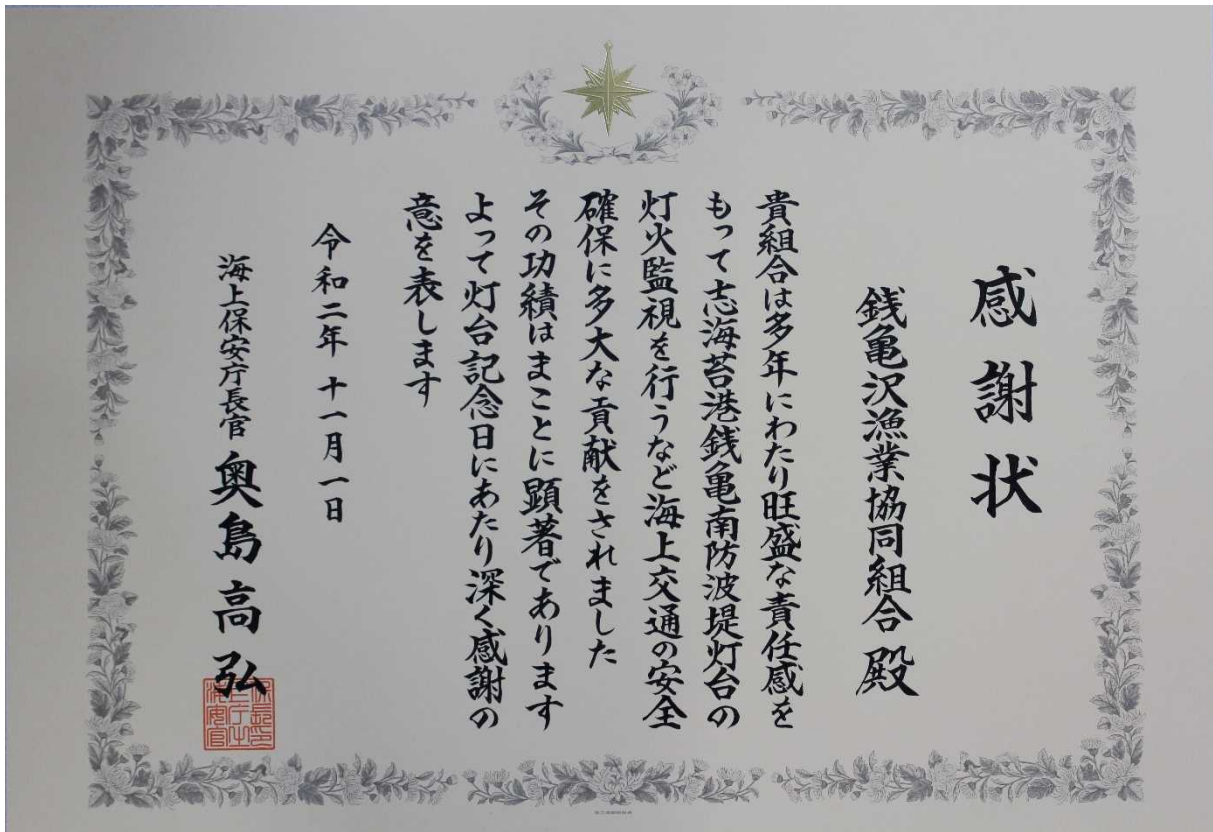 感謝状
銭亀沢漁業協同組合殿
貴組合は多年にわたり旺盛な責任感を
もって志海苔港銭亀南防波堤灯台の
灯火監視を行うなど海上交通の安全
確保に多大な貢献をされました
その功績はまことに顕著であります
よって灯台記念日にあたり深く感謝の
意を表します
令和二年 十一月一日
海上保安庁長官 奥島高弘